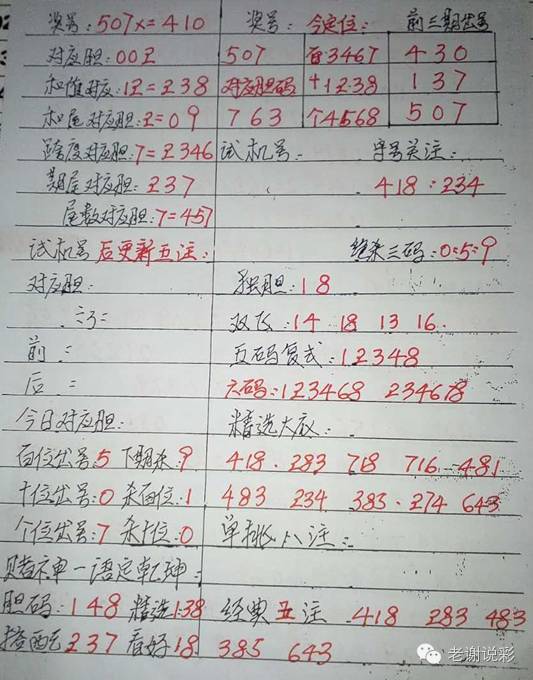 奖号:507x=410 奖号: 今定位: 前三期出号
对应胆:002 507 百3467 430
和值对应:12=238 对应胆码 十1238 137
和尾对应胆:2=09 763 个4568 507
跨度对应胆:7=2346 试机号: 字号关注:
期尾对应胆:237 418:234
尾数对应胆:7=457
试机号后更新五注: 绝杀三码:0:5:9
对应胆: 独胆:18
双飞:14 18 13 16
前: 五码复式:12348
后: 六码:123468 234678
今日对应胆: 精选大底:
百位出号:5 下期杀:9 418 283 718 716 481
十位出号:0 杀百位:1 483 234 383 274 643
个位出号:7 杀十位:0 单挑八注:
赌神一语定乾坤:
胆码:148 精选138 经典五注 418 283 483
搭配237 看好18 385 643
老谢说彩